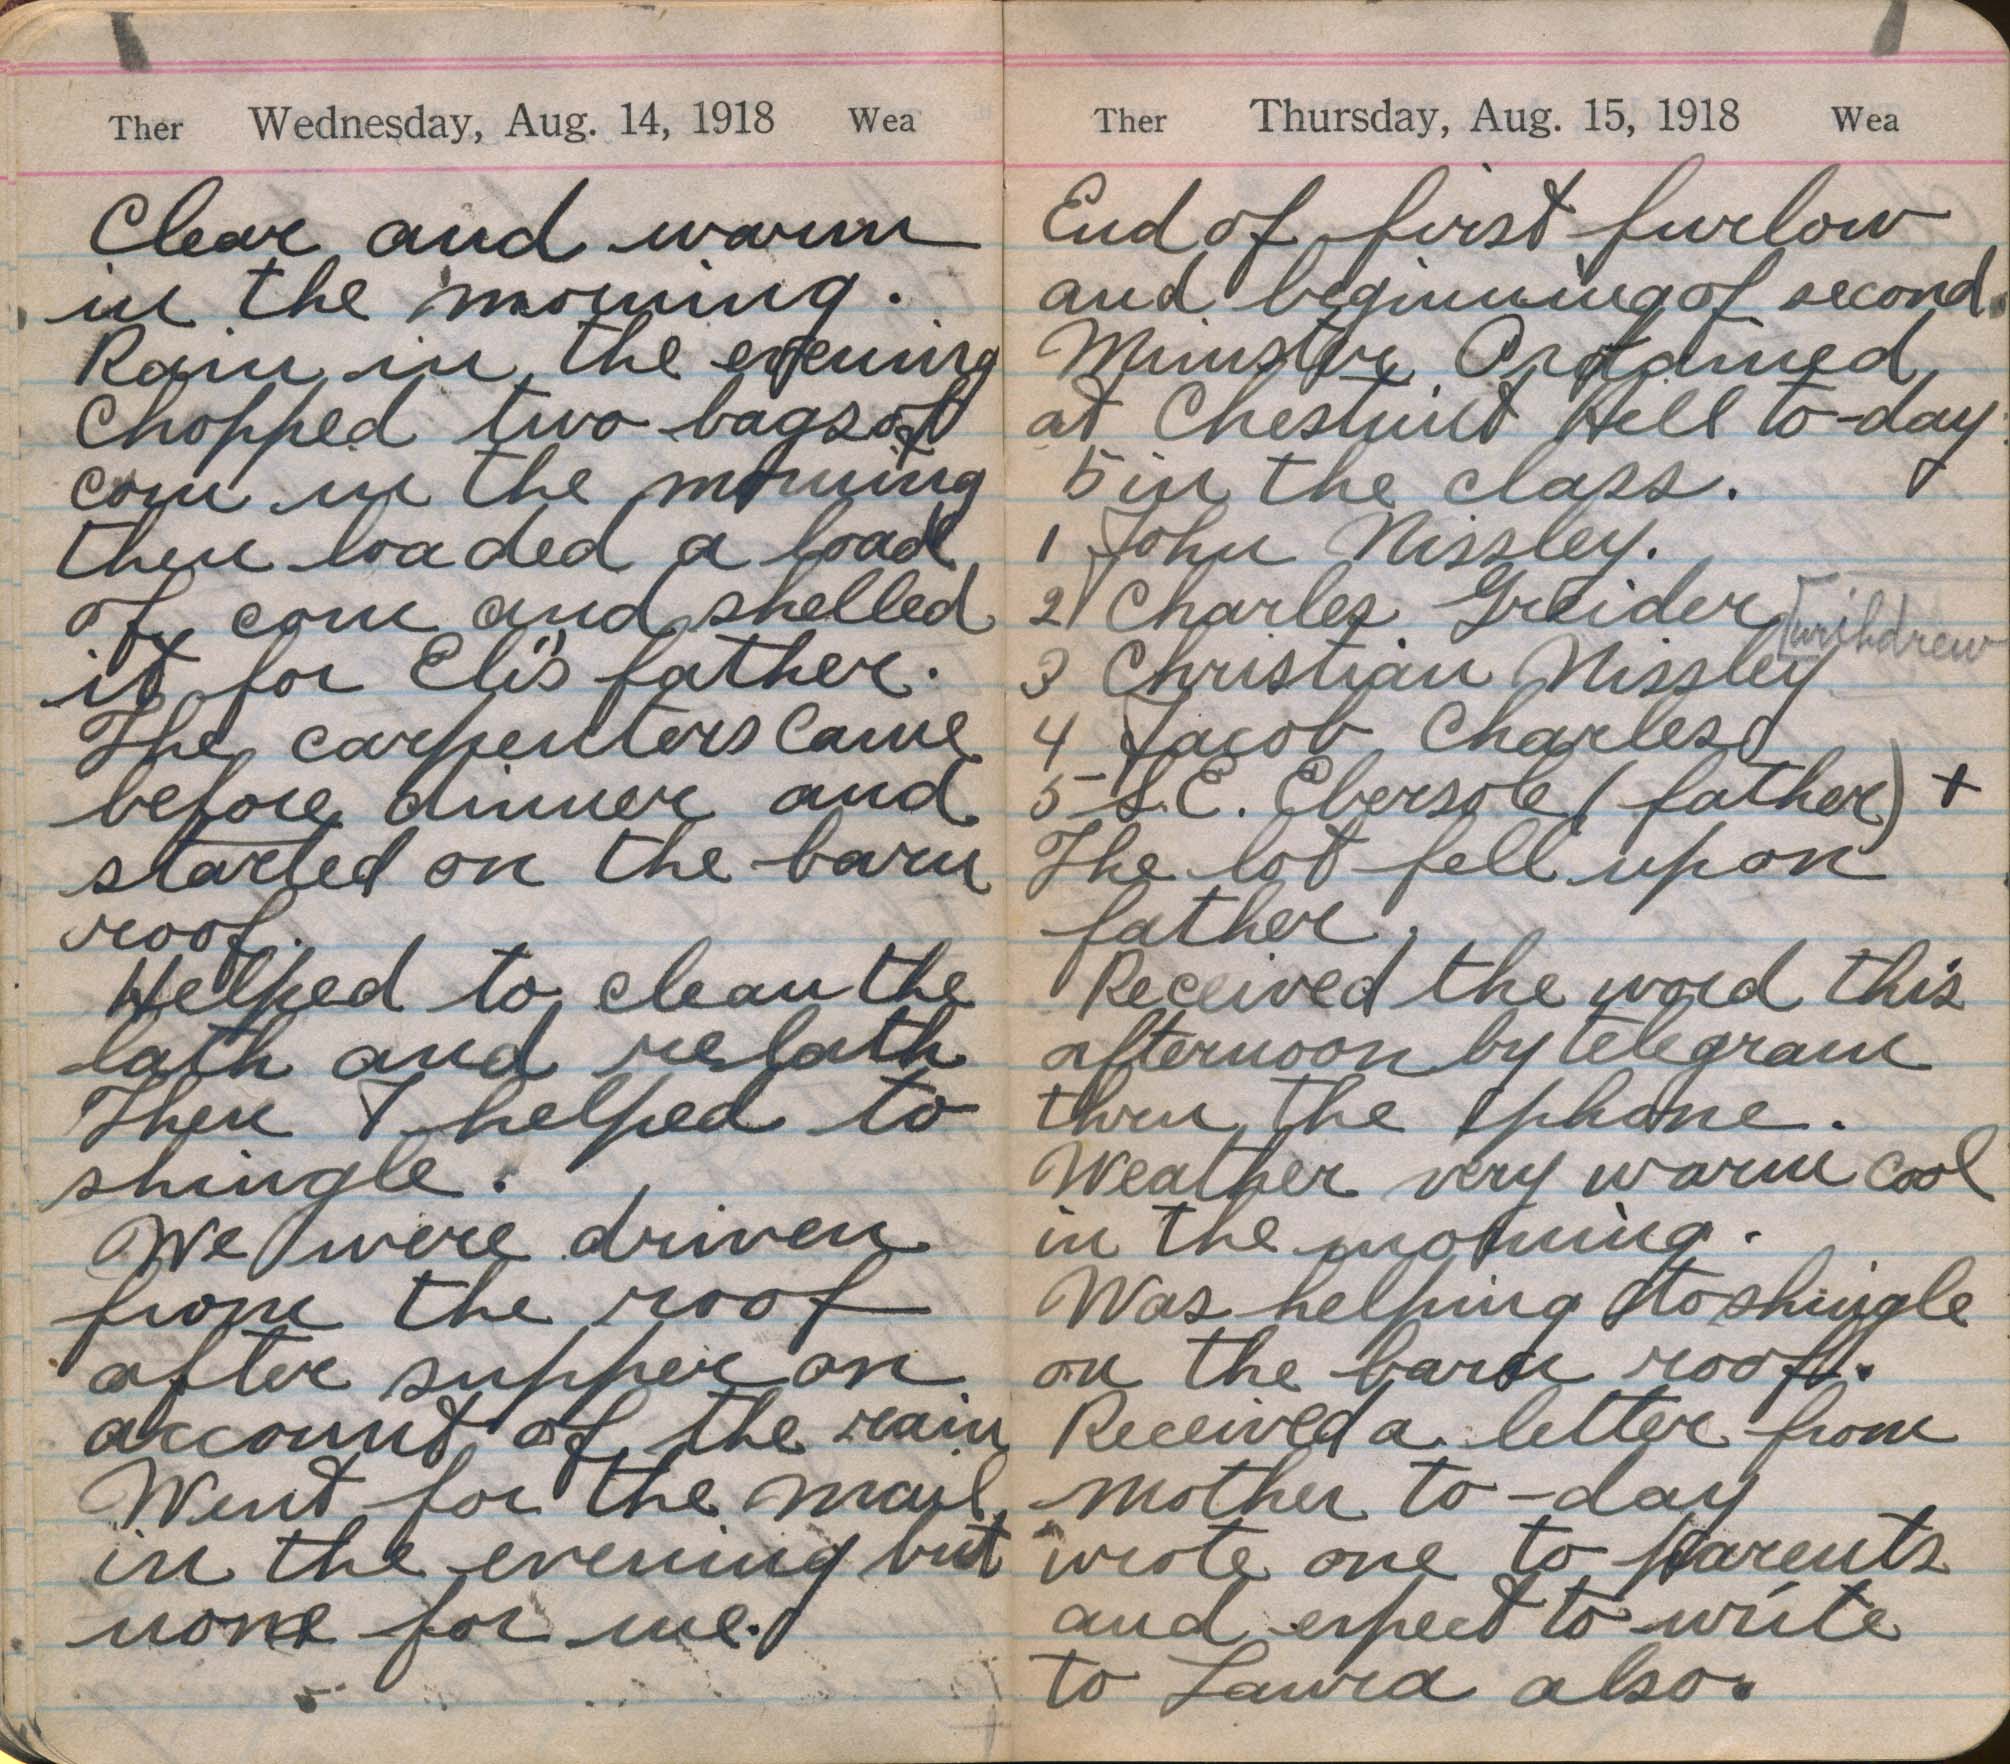 Ther Wednesday, Aug. 14, 1918 Wea
Clear and warm
in the morning.
Rain in the evening
Chopped two bags of
corn in the morning
then loaded a load
of corn and shelled
it for Eli's father.
The carpenters came
before dinner and
started on the barn
roof.
Helped to clean the
lath and relath
Then I helped to
shingle.
We were driven
from the roof
after supper on
account of the rain
Went for the mail
in the evening but
none for me.
Ther Thursday, Aug. 15, 1918 Wea
End of first furlow
and beginning of second.
Minister Ordained
at Chestnut Hill to-day
5 in the class.
1 John Nissley.
2 Charles Greider (wihdrew
3 Christian Nissley
4 Jacob Charles
5 S.E. Ebersole (father) +
The lot fell upon
father.
Received the word this
afternoon by telegram
thru the phone.
Weather very warm cool
in the morning.
Was helping to shingle
on the barn roof.
Received a letter from
mother to-day
wrote one to parents
and expect to write
to Laura also.